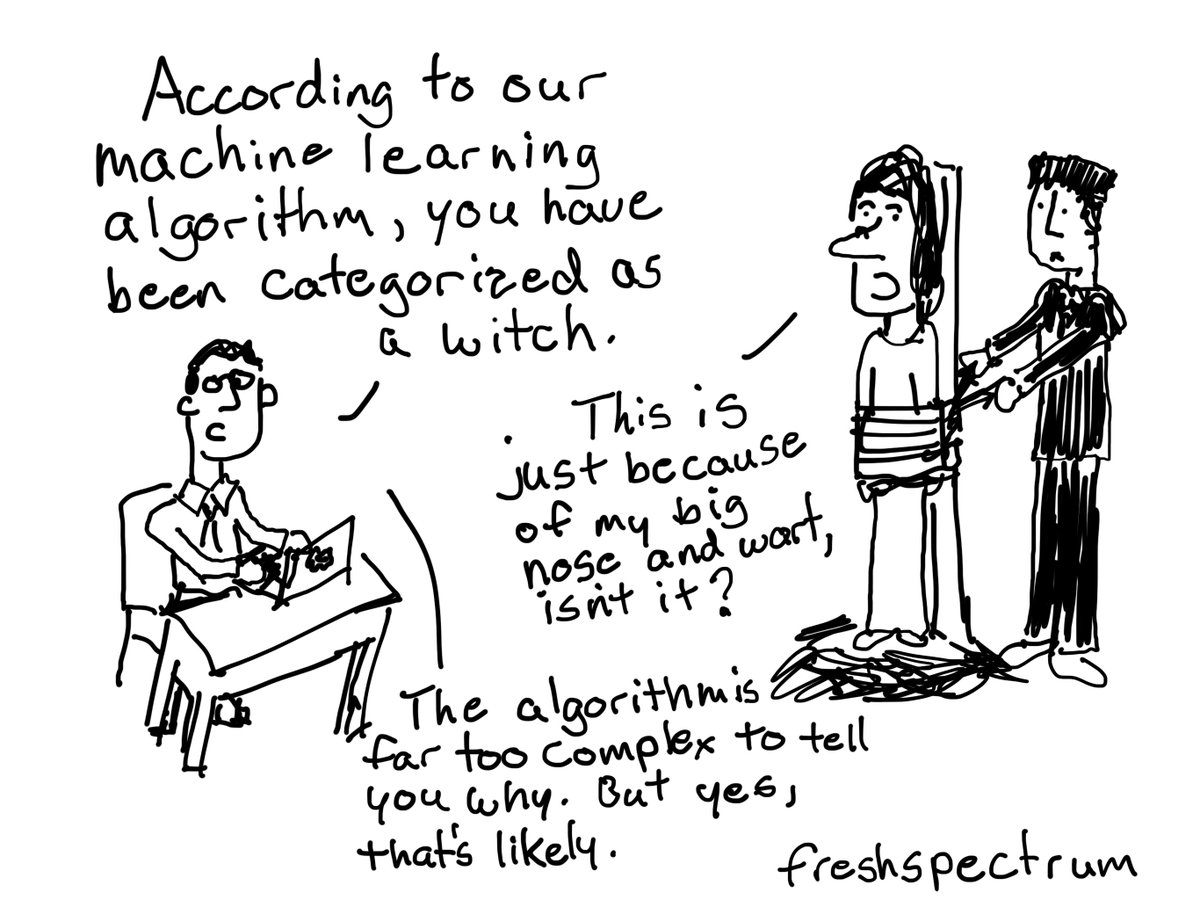 According to our
machine learning
algorithm, you have
been categorized as
a witch.
This is
just because
of my big
nose and wart,
isn't it?
The algorithm is
far too complex to tell
you why. But yes,
that's likely.
freshspectrum